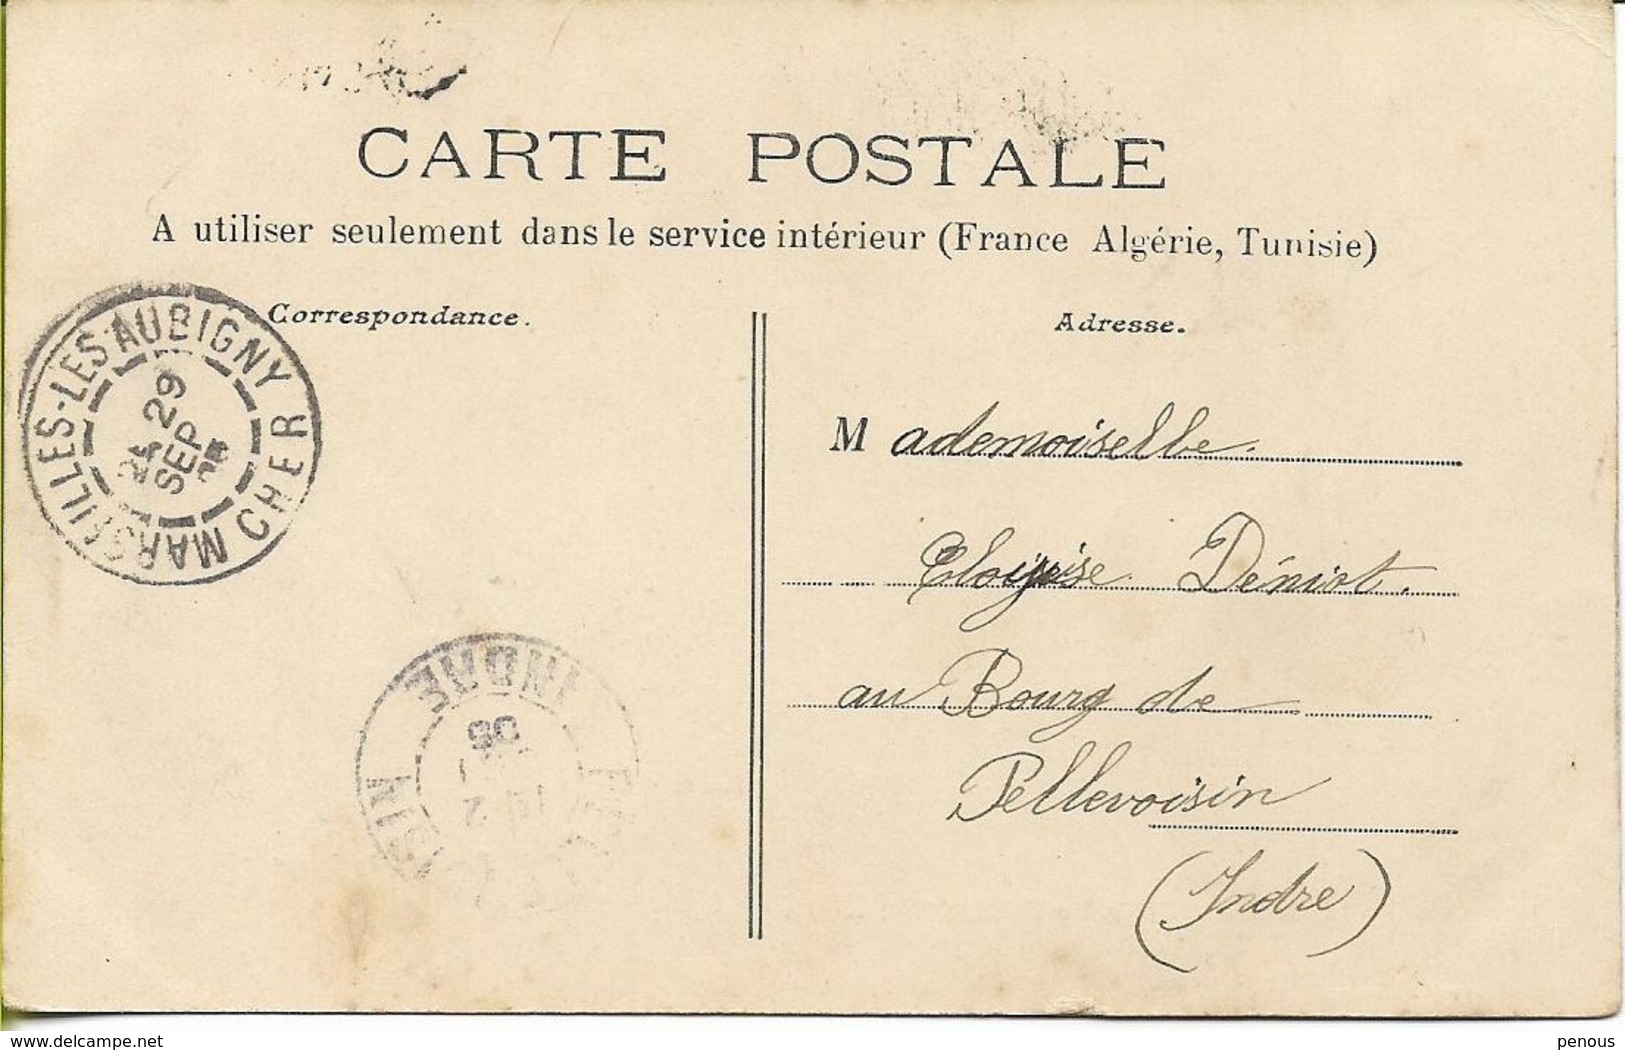 CARTE POSTALE
A utiliser seulement dans le service intérieur (France Algérie, Tunisie)
Correspondance.
Adresse.
MARSEILLES-LES-AUBIGNY CHER
29
SEP
Mademoiselle
Eloïse Déniot.
au Bourg de
Pellevoisin
(Indre)
INDRE
05
delcampe.net
penous